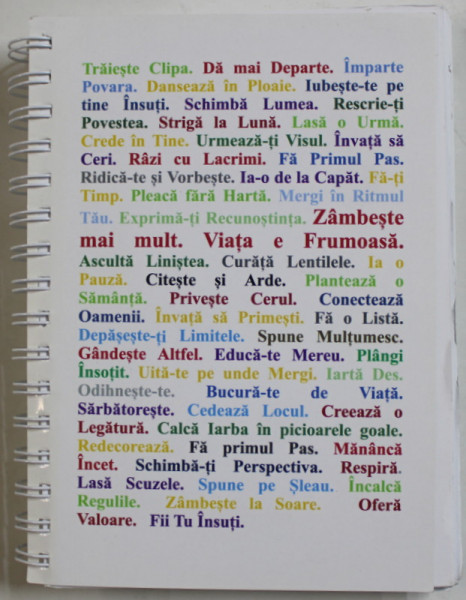 Trăiește Clipa. Dă mai Departe. Împarte
Povara. Dansează în Ploaie. Iubește-te pe
tine Însuți. Schimbă Lumea. Rescrie-ți
Povestea. Strigă la Lună. Lasă o Urmă.
Crede în Tine. Urmează-ți Visul. Învață să
Ceri. Râzi cu Lacrimi. Fă Primul Pas.
Ridică-te și Vorbește. Ia-o de la Capăt. Fă-ți
Timp. Pleacă fără Hartă. Mergi în Ritmul
Tău. Exprimă-ți Recunoștința. Zâmbește
mai mult. Viața e Frumoasă.
Ascultă Liniștea. Curăță Lentilele. Ia o
Pauză. Citește și Arde. Plantează o
Sămânță. Privește Cerul. Conectează
Oamenii. Învață să Primești. Fă o Listă.
Depășește-ți Limitele. Spune Mulțumesc.
Gândește Altfel. Educă-te Mereu. Plângi
Însoțit. Uită-te pe unde Mergi. Iartă Des.
Odihnește-te. Bucură-te de Viață.
Sărbătorește. Cedează Locul. Creează o
Legătură. Calcă Iarba în picioarele goale.
Redecorează. Fă primul Pas. Mănâncă
Încet. Schimbă-ți Perspectiva. Respiră.
Lasă Scuzele. Spune pe Șleau. Încalcă
Regulile. Zâmbește la Soare. Oferă
Valoare. Fii Tu Însuți.